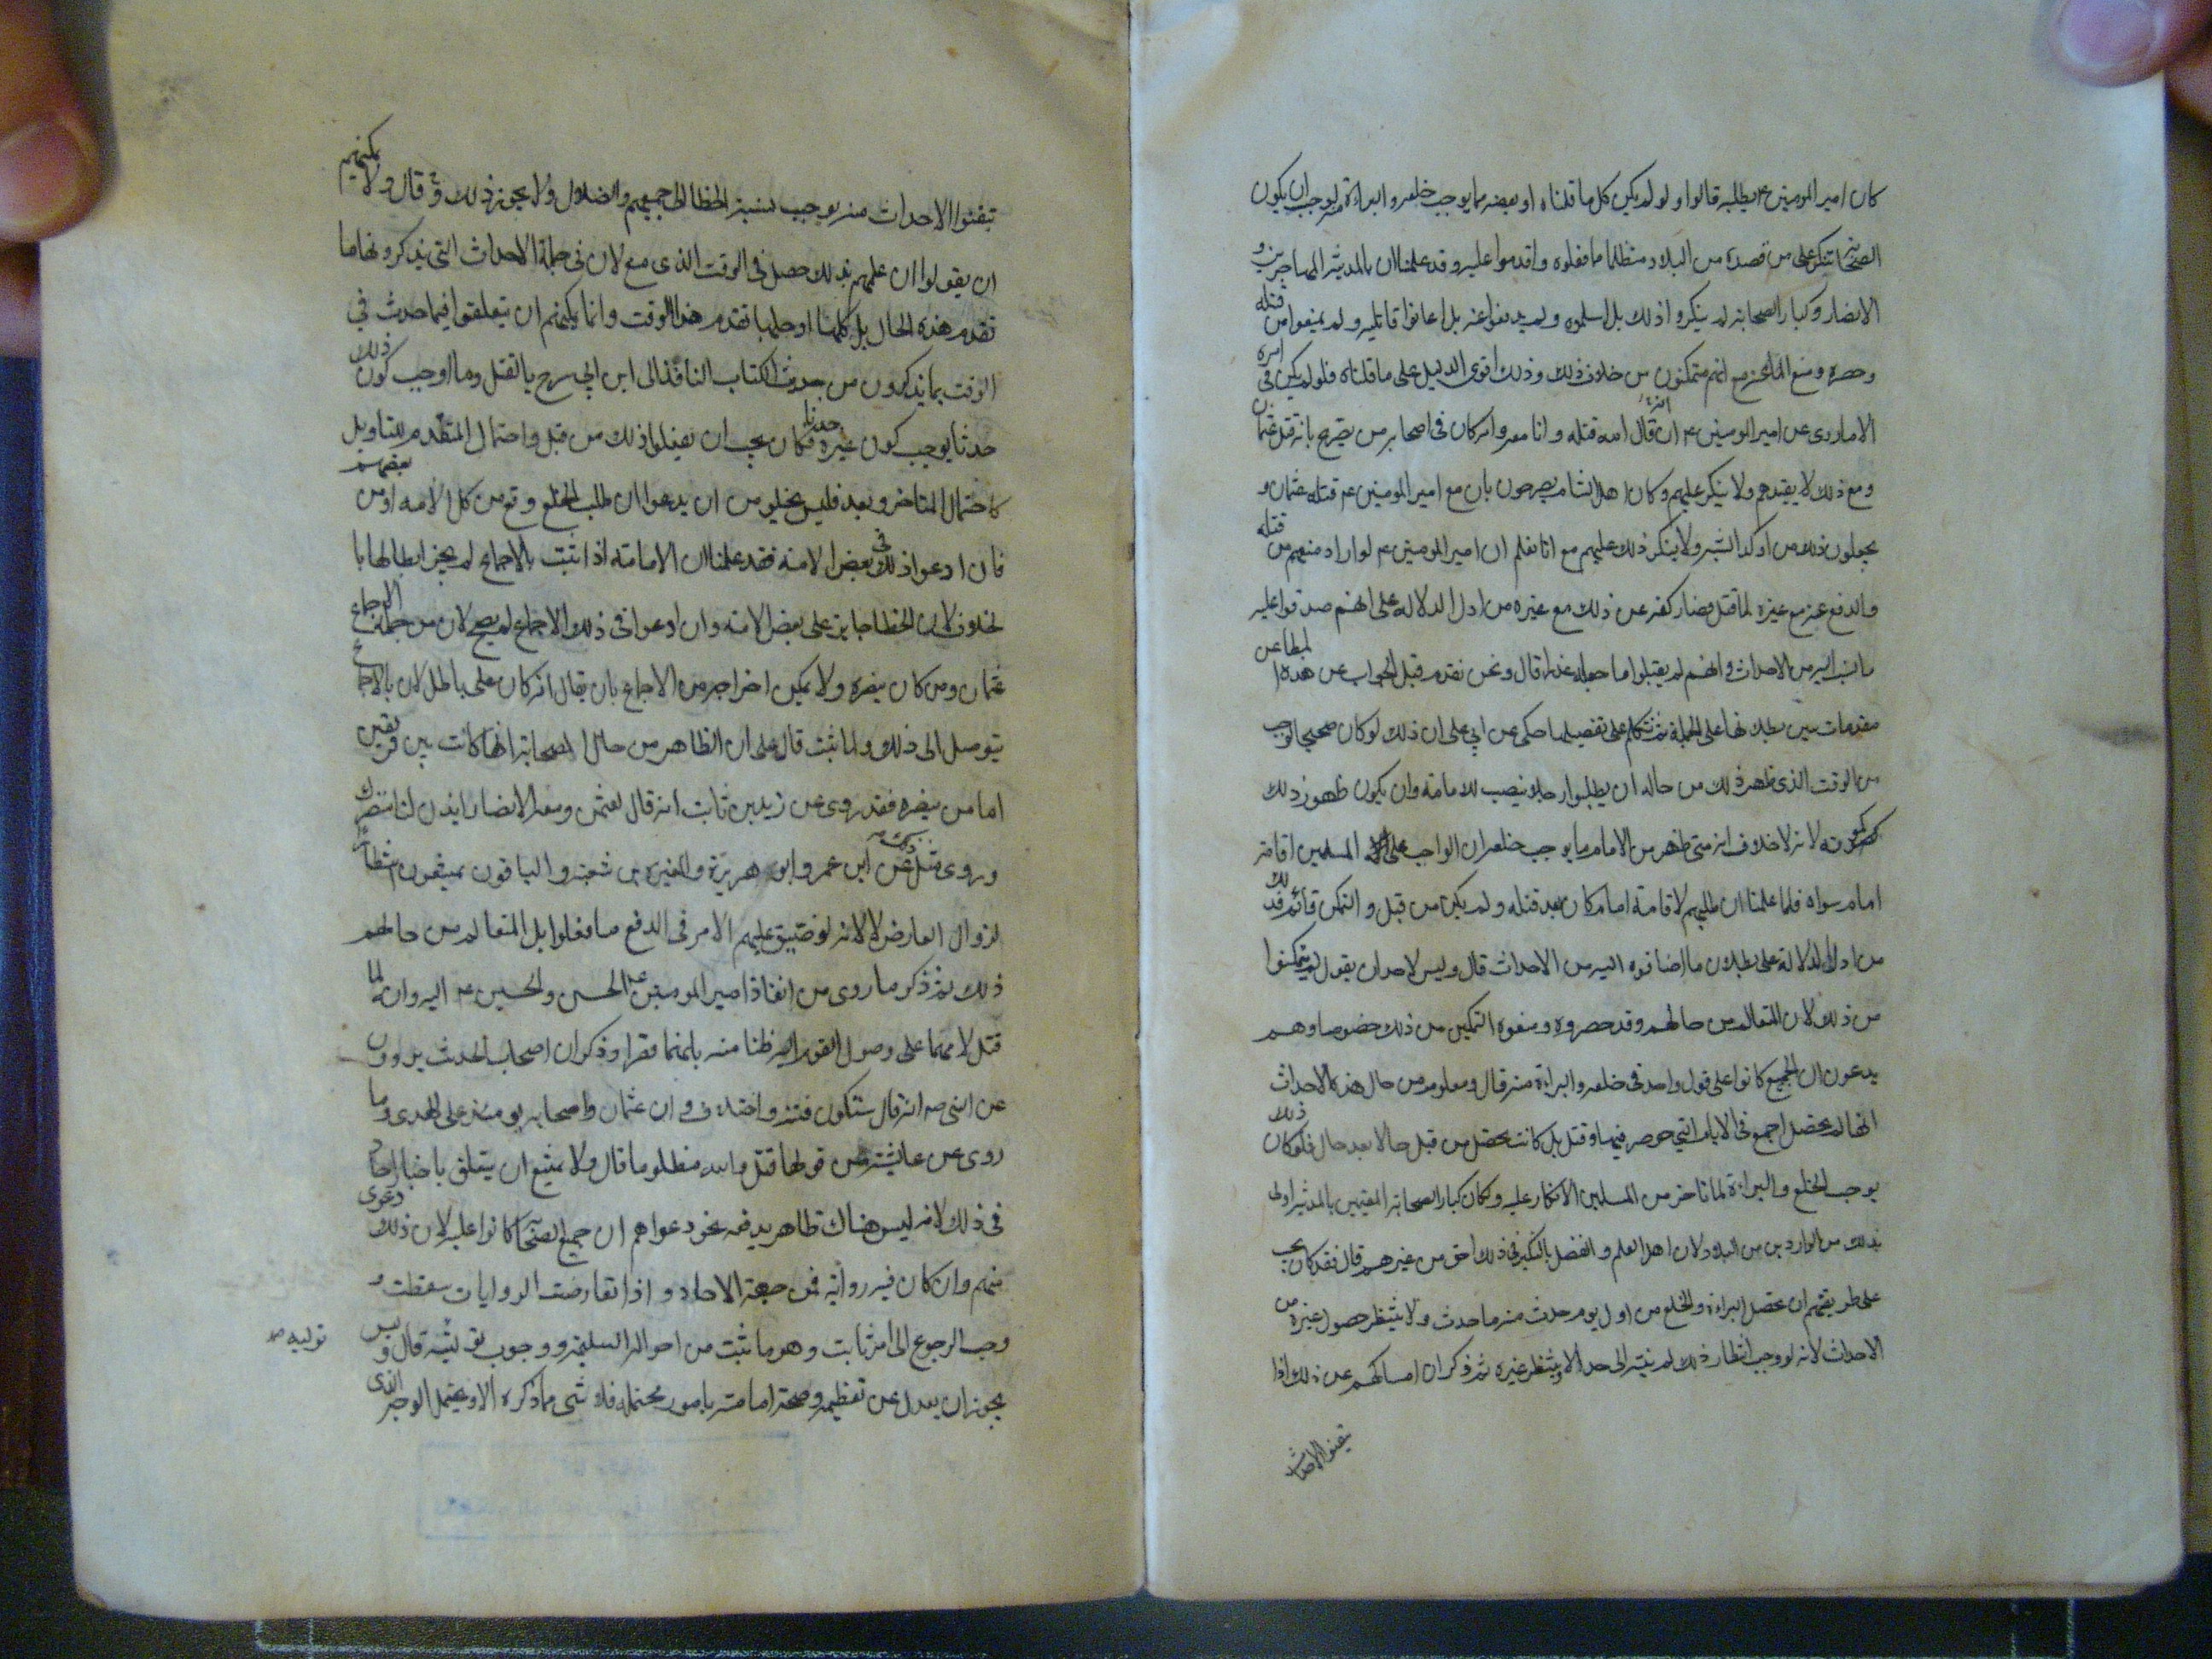 كان امير المومنين ع يطلبه قالوا ولو لم يكن كل ما قلناه او بعضه مما يوجب خلعه والبراءة منه لوجب ان يكون
الصحابة تنكر على من قصده من البلاد متظلما ما فعلوه واقدموا عليه وقد علمنا ان بالمدينة المهاجرين و
الانصار وكبار الصحابة لم ينكروا ذلك بل اسلموه ولم يدفعوا عنه بل اعانوا قاتليه ولم يمنعوا من قتله
وحصره ومنع الماء عنه مع انهم متمكنون من خلاف ذلك وذلك اقوى الدليل على ما قلناه فلو لم يكن في امره
الا ما روى عن امير المومنين ع انه قال الله قتله وانا معه وانه كان في اصحابه من يصرح بانه قتل عثمان
ومع ذلك لا يقيدهم ولا ينكر عليهم وكان اهل الشام يصرحون بان مع امير المومنين ع قتلة عثمان و
يجعلون ذلك من اوكد الشبه ولا ينكر ذلك عليهم مع انا نعلم ان امير المومنين ع لو اراد منعهم من قتله
والدفع عنه مع غيره لما قتل فصار كفه عن ذلك مع غيره من ادل الدلالة على انهم صدقوا عليه
ما نسب اليه من الاحداث وانهم لم يقبلوا ما جعله عذرا قال ونحن نقدم قبل الجواب عن هذه المطاعن
مقدمات تبين بطلانها على الجملة ثم نتكلم على تفصيلها حكى عن ابي على ان ذلك لو كان صحيحا لوجب
من الوقت الذى ظهر ذلك من حاله ان يطلبوا رجلا ينصب للامامة وان يكون ظهور ذلك
كموته لانه لا خلاف انه متى ظهر من الامام ما يوجب خلعه ان الواجب على المسلمين اقامة
امام سواه فلما علمنا ان طلبهم لاقامة امام كان بعد قتله ولم يكن من قبل والتمكن قائم فذلك
من ادل الدلالة على بطلان ما اضافوه اليه من الاحداث قال وليس لاحد ان يقول لم يتمكنوا
من ذلك لان المتعالم من حالهم وقد حصروه ومنعوه التمكين من ذلك خصوصا وهم
يدعون ان الجميع كانوا على قول واحد في خلعه والبراءة منه قال ومعلوم من حال هذه الاحداث
انها لم يحصل اجمع في الايام التي حوصر فيها وقتل بل كانت تحصل من قبل حالا بعد حال فلو كان ذلك
يوجب الخلع والبراءة لما تاخر من المسلمين الانكار عليه ولكان كبار الصحابة المقيمين بالمدينة اولى
بذلك من الواردين من البلاد لان اهل العلم والفضل بالنكير في ذلك احق من غيرهم قال فقد كان يجب
على طريقتهم ان تحصل البراءة والخلع من اول يوم حدث منه ما حدث ولا ينتظر حصول غيره من
الاحداث لانه لو وجب انتظار ذلك لم ينته الى حد الا وينتظر غيره ثم ذكر ان امساكهم عن ذلك اذا
تيقنوا الاحداث
تيقنوا الاحداث منه يوجب نسبة الخطا الى جميعهم والضلال ولا يجوز ذلك وقال ولا يمكنهم
ان يقولوا ان علمهم بذلك حصل في الوقت الذى منع لان في جملة الاحداث التي يذكرونها ما
تقدم هذه الحال بل كلها او جلها تقدم هذا الوقت وانما يمكنهم ان يتعلقوا فيما حدث في
الوقت بما يذكرون من حديث الكتاب النافذ الى ابن ابي سرح بالقتل وما اوجب كون ذلك
حدثا يوجب كون غيره حدثا فكان يجب ان يفعلوا ذلك من قبل واحتمال المتقدم للتاويل
كاحتمال المتاخر وبعد فليس يخلو من ان يدعوا ان طلب الخلع وقع من كل الامة او من بعضهم
فان ادعوا ذلك في بعض الامة فقد علمنا ان الامامة اذا ثبتت بالاجماع لم يجز ابطالها با
لخلاف لان الخطا جايز على بعض الامة وان ادعوا في ذلك الاجماع لم يصح لان من جملة الاجماع
عثمان ومن كان ينصره ولا يمكن اخراجه من الاجماع بان يقال انه كان على باطل لان بالاجماع
يتوصل الى ذلك ولما يثبت قال على ان الظاهر من حال الصحابة انها كانت بين فريقين
اما من ينصره فقد روى عن زيد بن ثابت انه قال لعثمن ومعه الانصار ايذن لنا ننصرك
وروى مثل ذلك عن ابن عمر وابو هريرة والمغيرة بن شعبة والباقون ممتنعون انتظارا
لزوال العارض لا لانه لو ضيق عليهم الامر في الدفع ما فعلوا بل المتعالم من حالهم
ذلك ثم ذكر ما روى من انفاذ امير المومنين ع الحسن والحسين ع اليه وانه لما
قتل لامهما على وصول القوم اليه ظنا منه بانهما قصرا وذكر ان اصحاب الحديث يروون
عن النبي ص انه قال ستكون فتنة واختلاف وان عثمان واصحابه يومئذ على الهدى وما
روى عن عايشة من قولها قتل والله مظلوما قال ولا يمتنع ان يتعلق باخبار احاد
في ذلك لانه ليس هناك ظاهر يدفعه نحو دعواهم ان جميع الصحابة كانوا عليه لان ذلك دعوى
منهم وان كان فيه رواية فمن جهة الاحاد واذا تعارضت الروايات سقطت و
وجب الرجوع الى امر ثابت وهو ما ثبت من احواله السليمة ووجوب توليته قال وليس
توليه صح
يجوز ان يعدل عن تعظيمه وصحة امامته بامور محتملة فلا شى مما ذكره الا ويحتمل الوجه الذى